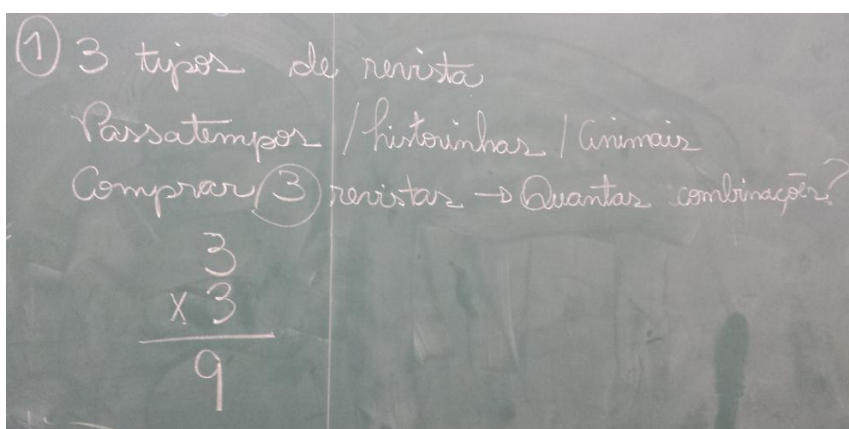 ① 3 tipos de revista
Passatempos / historinhas / Animais
Comprar 3 revistas → Quantas combinações?
3
x 3
9